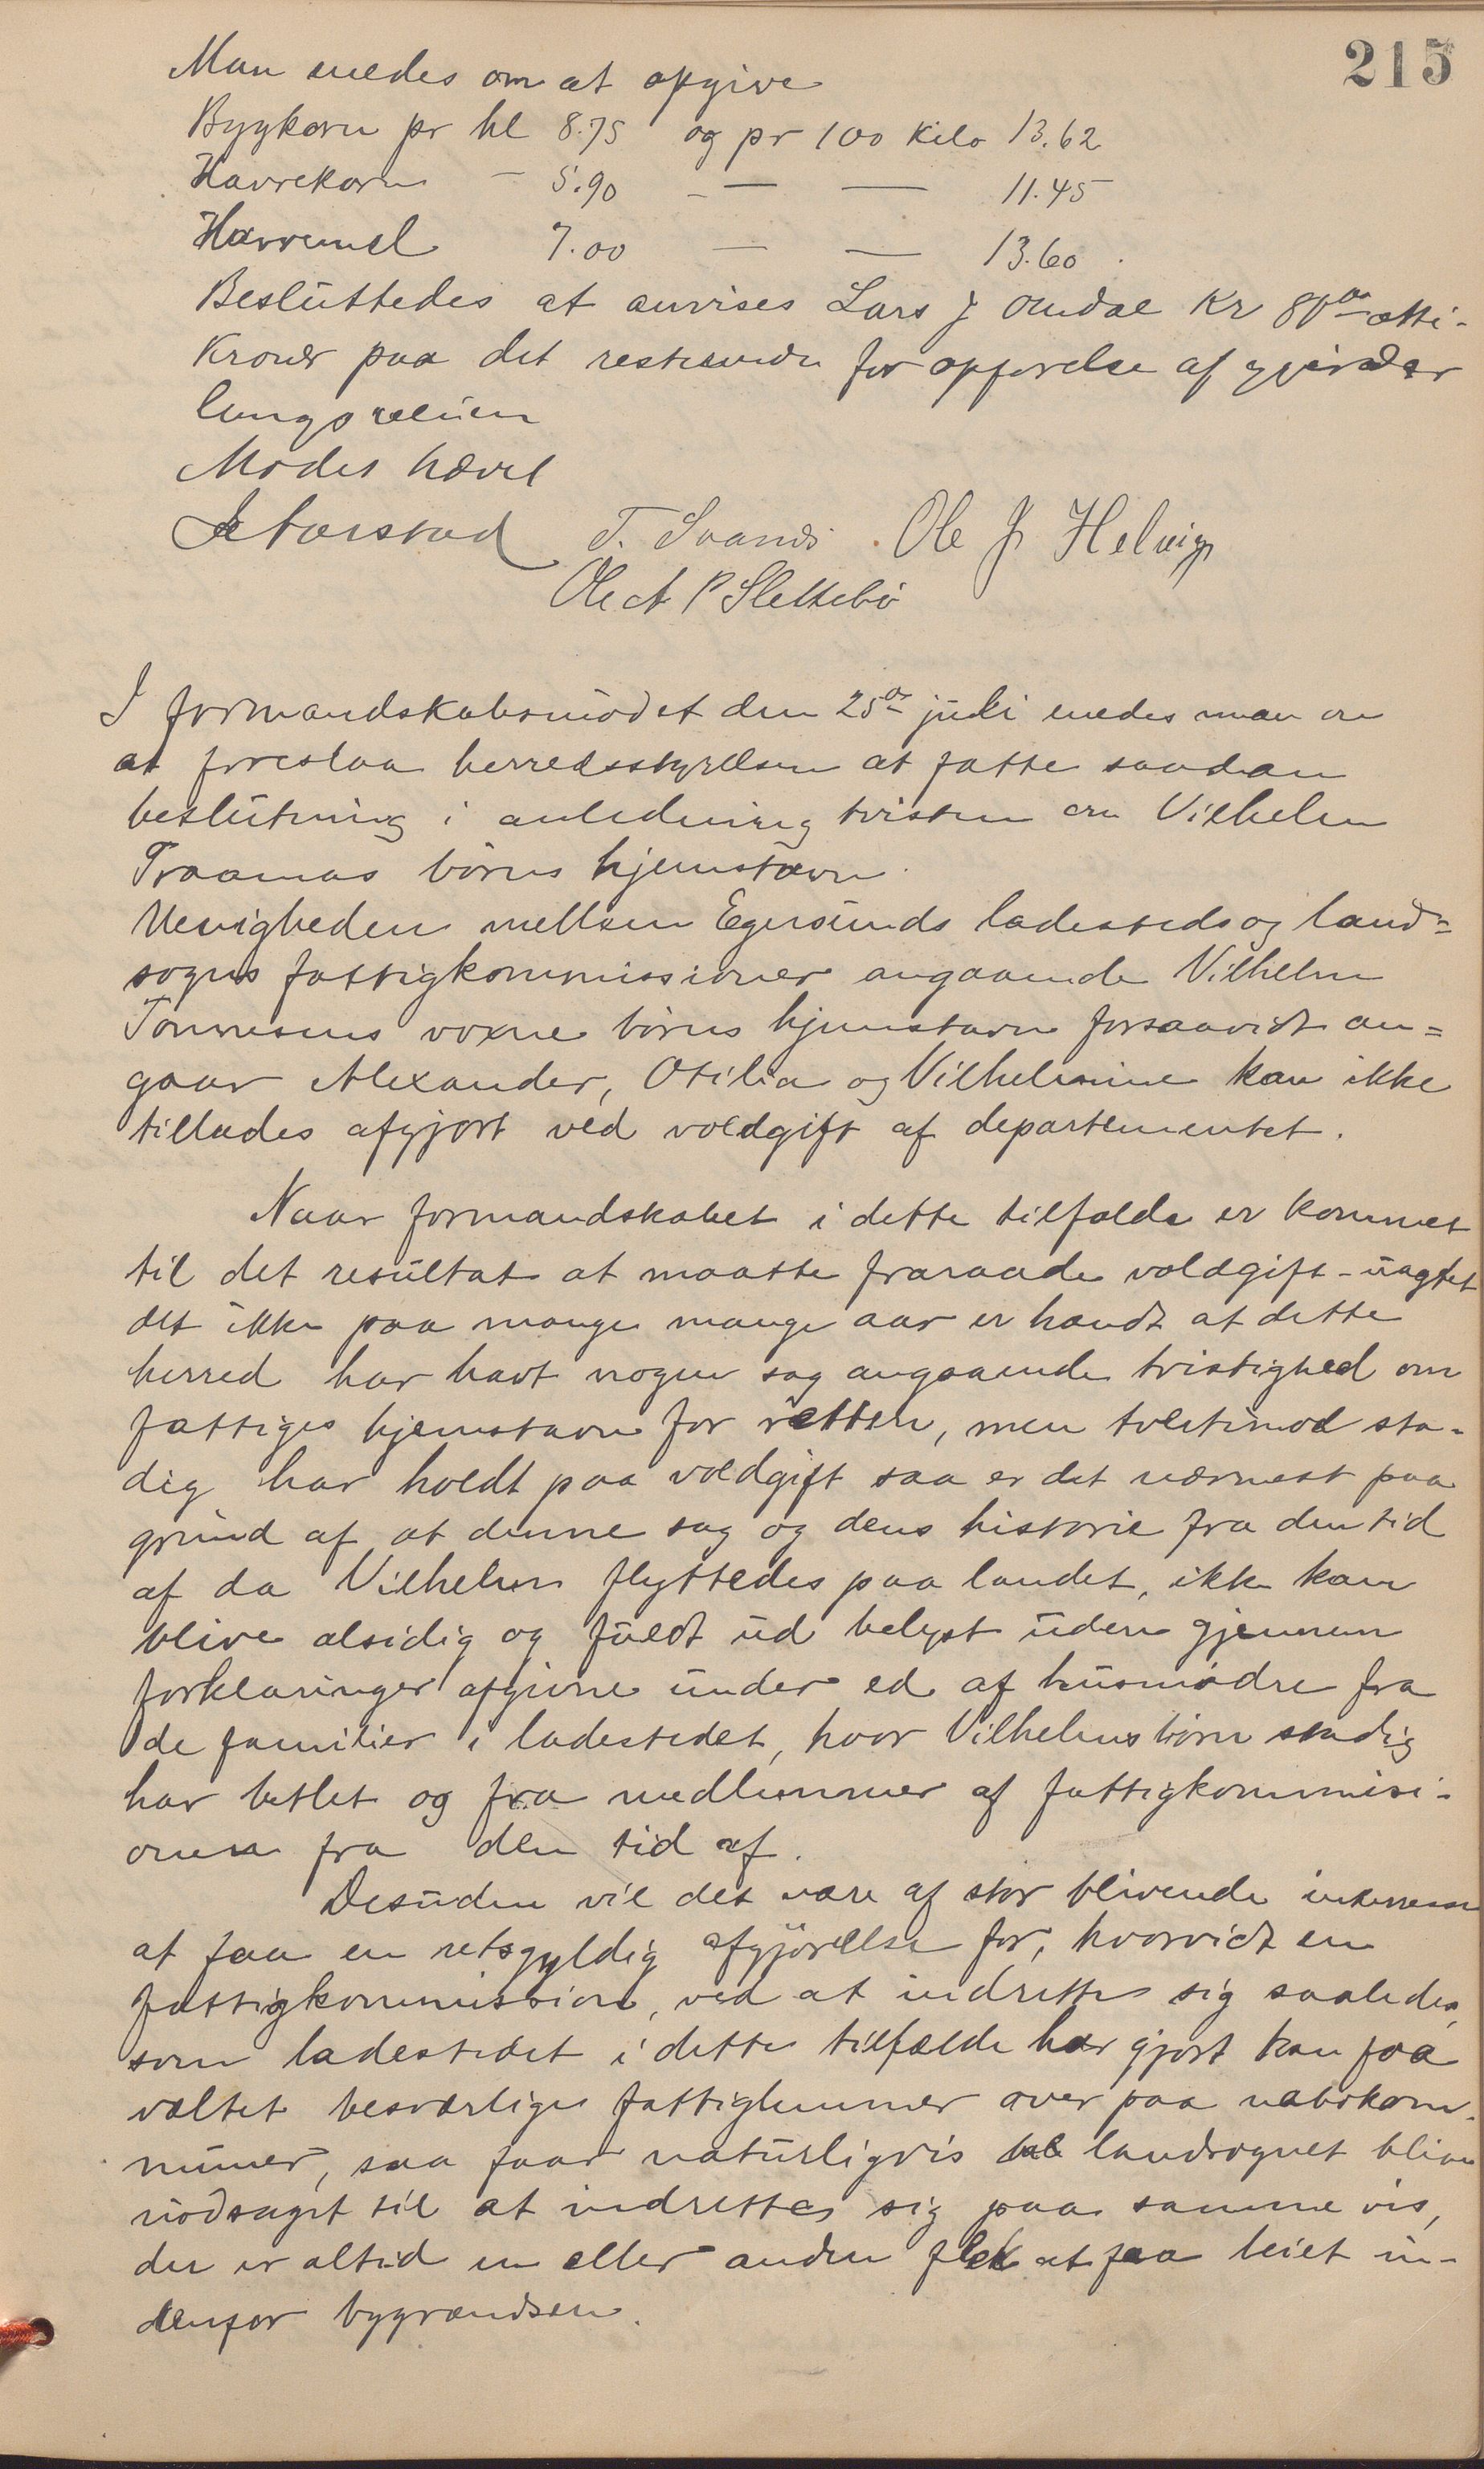 215
Man enedes om at opgive
Bygkorn pr hl 8.75 og pr 100 Kilo 13.62
Havrekorn - 5.90 - — — 11.45
Havremel 7.00 — — 13.60.
Besluttedes at anvises Lars J Omdal Kr 80 otti-
Kroner paa det resterende for opførelse af gjerder
langs veien
Mødet hævet
Ole J. Helvig
Ole A P Slettebø
I formandskabsmødet den 25de juli enedes man om
at foreslaa herredsstyrelsen at fatte saadan
beslutning i anledning tvisten om Vilhelm
børns hjemstavn.
Uenigheden mellem Egersunds ladesteds og land=
sogns fattigkommissioner angaaende Vilhelm
Tønnesens voxne børns hjemstavn forsaavidt an=
gaar Alexander, Otilia og Vilhelmine kan ikke
tillades afgjort ved voldgift af departementet.
Naar formandskabet i dette tilfælde er kommet
til det resultat at maatte fraraade voldgift - uagtet
det ikke paa mange mange aar er hændt at dette
herred har havt nogen sag angaaende tvistighed om
fattiges hjemstavn for retten, men tvertimod sta-
dig har holdt paa voldgift saa er det nærmest paa
grund af at denne sag og dens historie fra den tid
af da Vilhelm flyttedes paa landet, ikke kan
blive alsidig og fuldt ud belyst uden gjennem
forklaringer afgivne under ed af husmødre fra
de familier i ladestedet, hvor Vilhelms børn stadig
har betlet og fra medlemmer af fattigkommisi-
onen fra den tid af.
Desuden vil det være af stor blivende interesse
at faa en retsgyldig afgjørelse for, hvorvidt en
fattigkommission, ved at indrette sig saaledes,
som ladestedet i dette tilfælde har gjort kan faa
væltet besværlige fattiglemmer over paa nabokom-
muner, saa faar naturligvis landsognet blive
nødsaget til at indrette sig paa samme vis,
der er altid en eller anden flek at faa leiet in-
denfor bygrændsen.